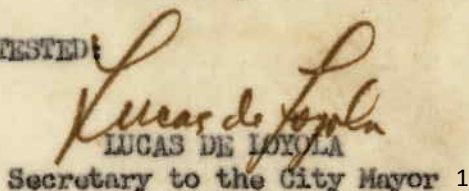 TESTED:
Lucas de Loyola
LUCAS DE LOYOLA
Secretary to the City Mayor 1